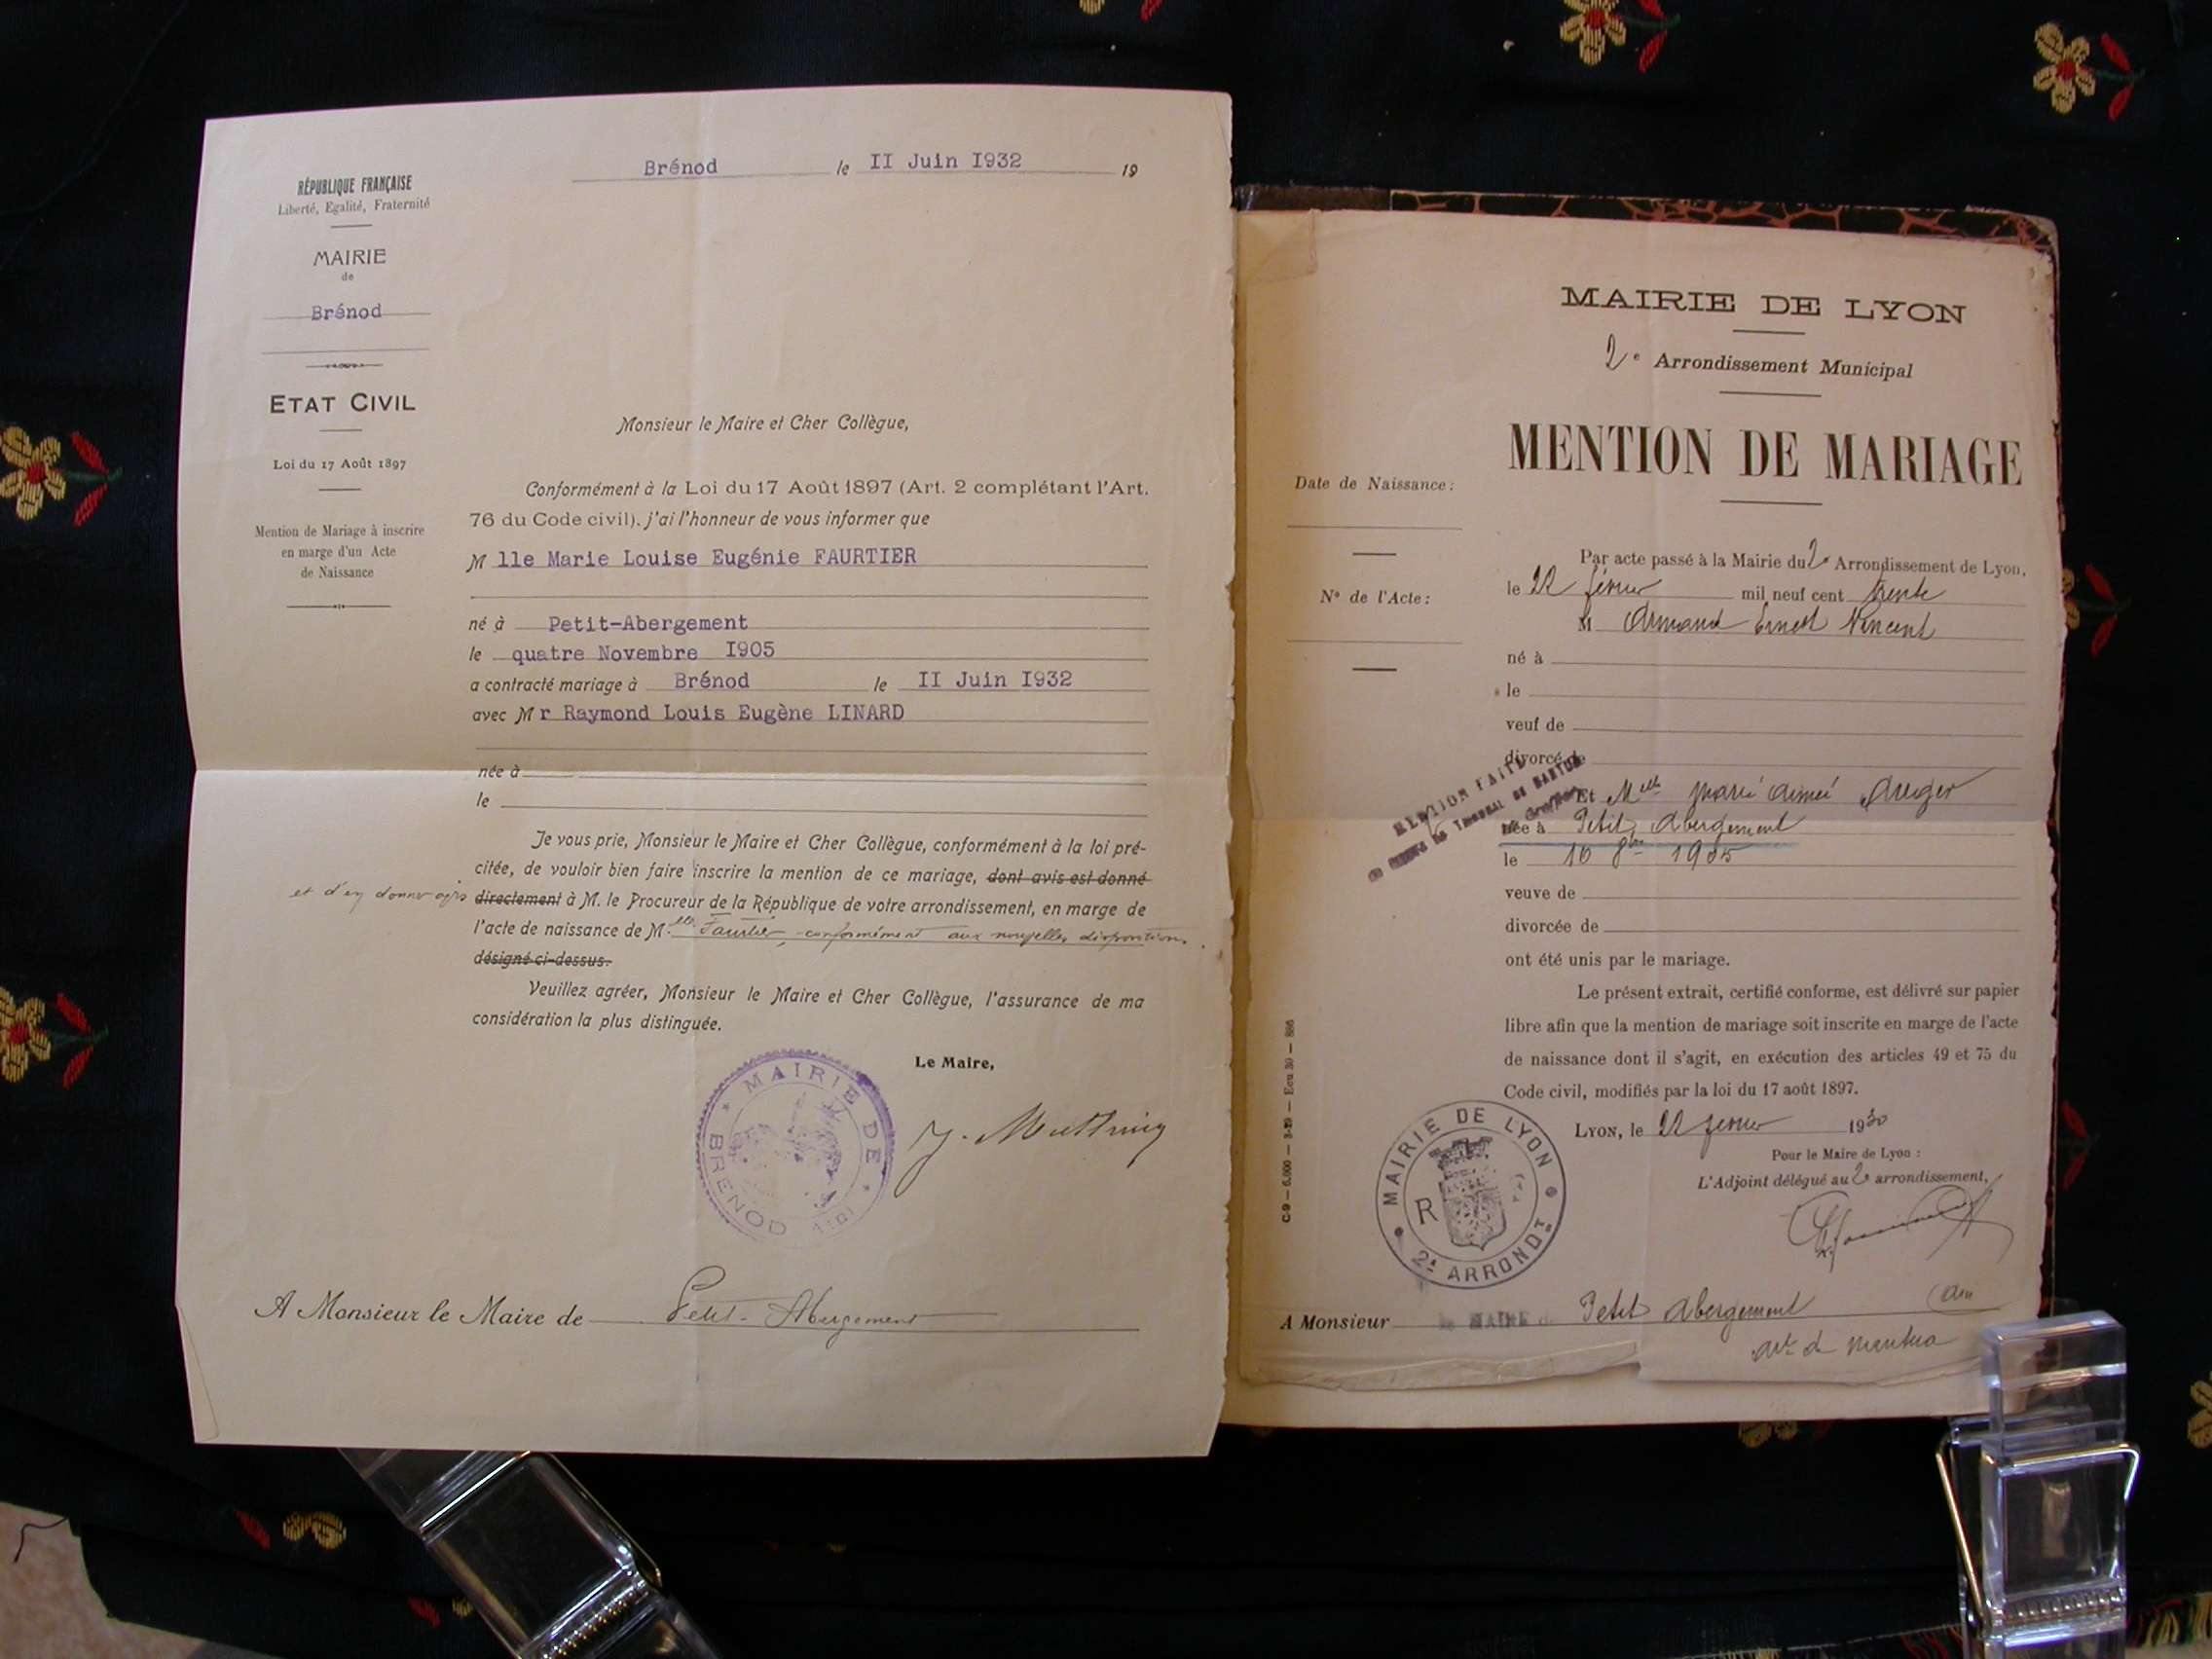 Brénod le II Juin I932 19
RÉPUBLIQUE FRANÇAISE
Liberté, Egalité, Fraternité
MAIRIE
de
Brénod
ETAT CIVIL
Loi du 17 Août 1897
Mention de Mariage à inscrire
en marge d'un Acte
de Naissance
Monsieur le Maire et Cher Collègue,
Conformément à la Loi du 17 Août 1897 (Art. 2 complétant l'Art.
76 du Code civil), j'ai l'honneur de vous informer que
M lle Marie Louise Eugénie FAURTIER
né à Petit-Abergement
le quatre Novembre I905
a contracté mariage à Brénod le II Juin I932
avec M r Raymond Louis Eugène LINARD
née à
le
Je vous prie, Monsieur le Maire et Cher Collègue, conformément à la loi pré-
citée, de vouloir bien faire inscrire la mention de ce mariage, dont avis est donné
et d'en donner avis directement à M. le Procureur de la République de votre arrondissement, en marge de
l'acte de naissance de M. elle Faurtier, conformément aux nouvelles dispositions.
désigné ci-dessus.
Veuillez agréer, Monsieur le Maire et Cher Collègue, l'assurance de ma
considération la plus distinguée.
Le Maire,
MAIRIE DE BRENOD
A Monsieur le Maire de Petit-Abergement
MAIRIE DE LYON
2e Arrondissement Municipal
MENTION DE MARIAGE
Date de Naissance :
N° de l'Acte :
Par acte passé à la Mairie du 2e Arrondissement de Lyon,
le 22 février mil neuf cent trente
M Armand Ernest Vincent
né à
le
veuf de
divorcé de
MENTION FAITE
Et Melle Marie Aimée
née à Petit Abergement
le 10 8bre 1905
veuve de
divorcée de
ont été unis par le mariage.
Le présent extrait, certifié conforme, est délivré sur papier
libre afin que la mention de mariage soit inscrite en marge de l'acte
de naissance dont il s'agit, en exécution des articles 49 et 75 du
Code civil, modifiés par la loi du 17 août 1897.
LYON, le 22 février 1930
Pour le Maire de Lyon :
L'Adjoint délégué au 2e arrondissement,
MAIRIE DE LYON
R
2e ARRONDt
A Monsieur le MAIRE de Petit Abergement (Ain
art de Nantua